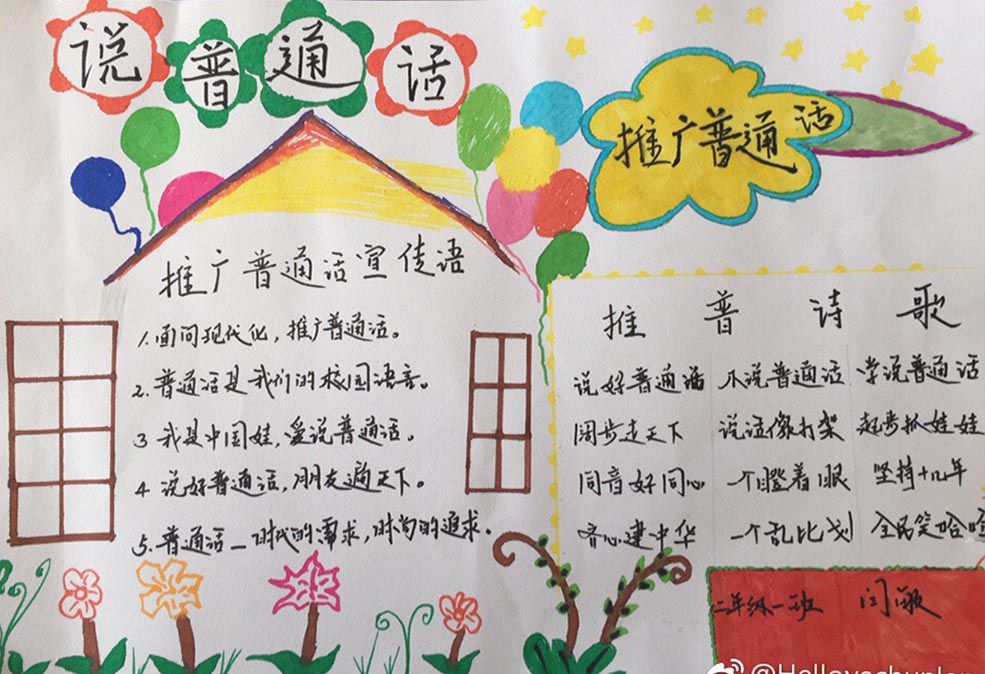 说普通话
推广普通话
推广普通话宣传语
1.面向现代化，推广普通话。
2.普通话是我们的校园语言。
3 我是中国娃，爱说普通话。
4 说好普通话，朋友遍天下。
5.普通话一时代的需求，时尚的追求。
推普诗歌
说好普通话
阔步走天下
同音好同心
齐心建中华
不说普通话
说话像打架
一个瞪着眼
一个乱比划
学说普通话
起步抓娃娃
坚持十几年
全民笑哈哈
二年级一班